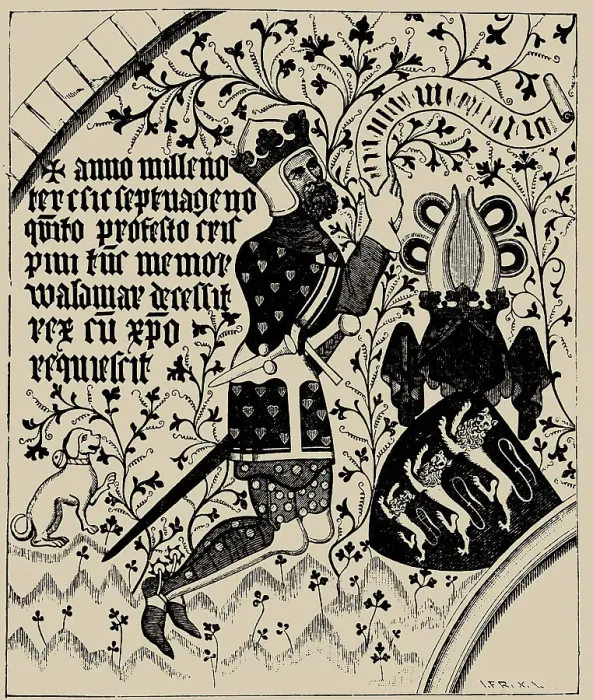 ✠ anno milleno
ter c sic septuageno
quīto profesto cris
pini tūc memor
waldmar decessit
rex cū xpo
requiescit